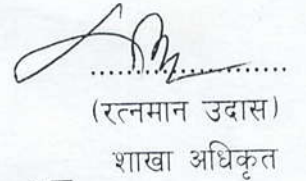 ....................
(रत्नमान उदास)
शाखा अधिकृत